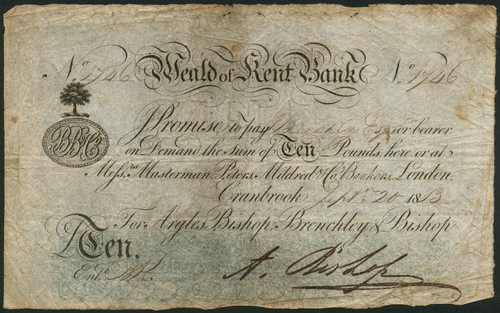 No. 1746 Weald of Kent Bank No. 1746
I Promise to pay or bearer
on Demand the Sum of Ten Pounds, here, or at
Messrs. Masterman, Peters, Mildred & Co. Bankers, London.
Cranbrook Septr. 20 1813
For Argles, Bishop, Brenchley & Bishop
Ten.
Entd.
A. Bishop